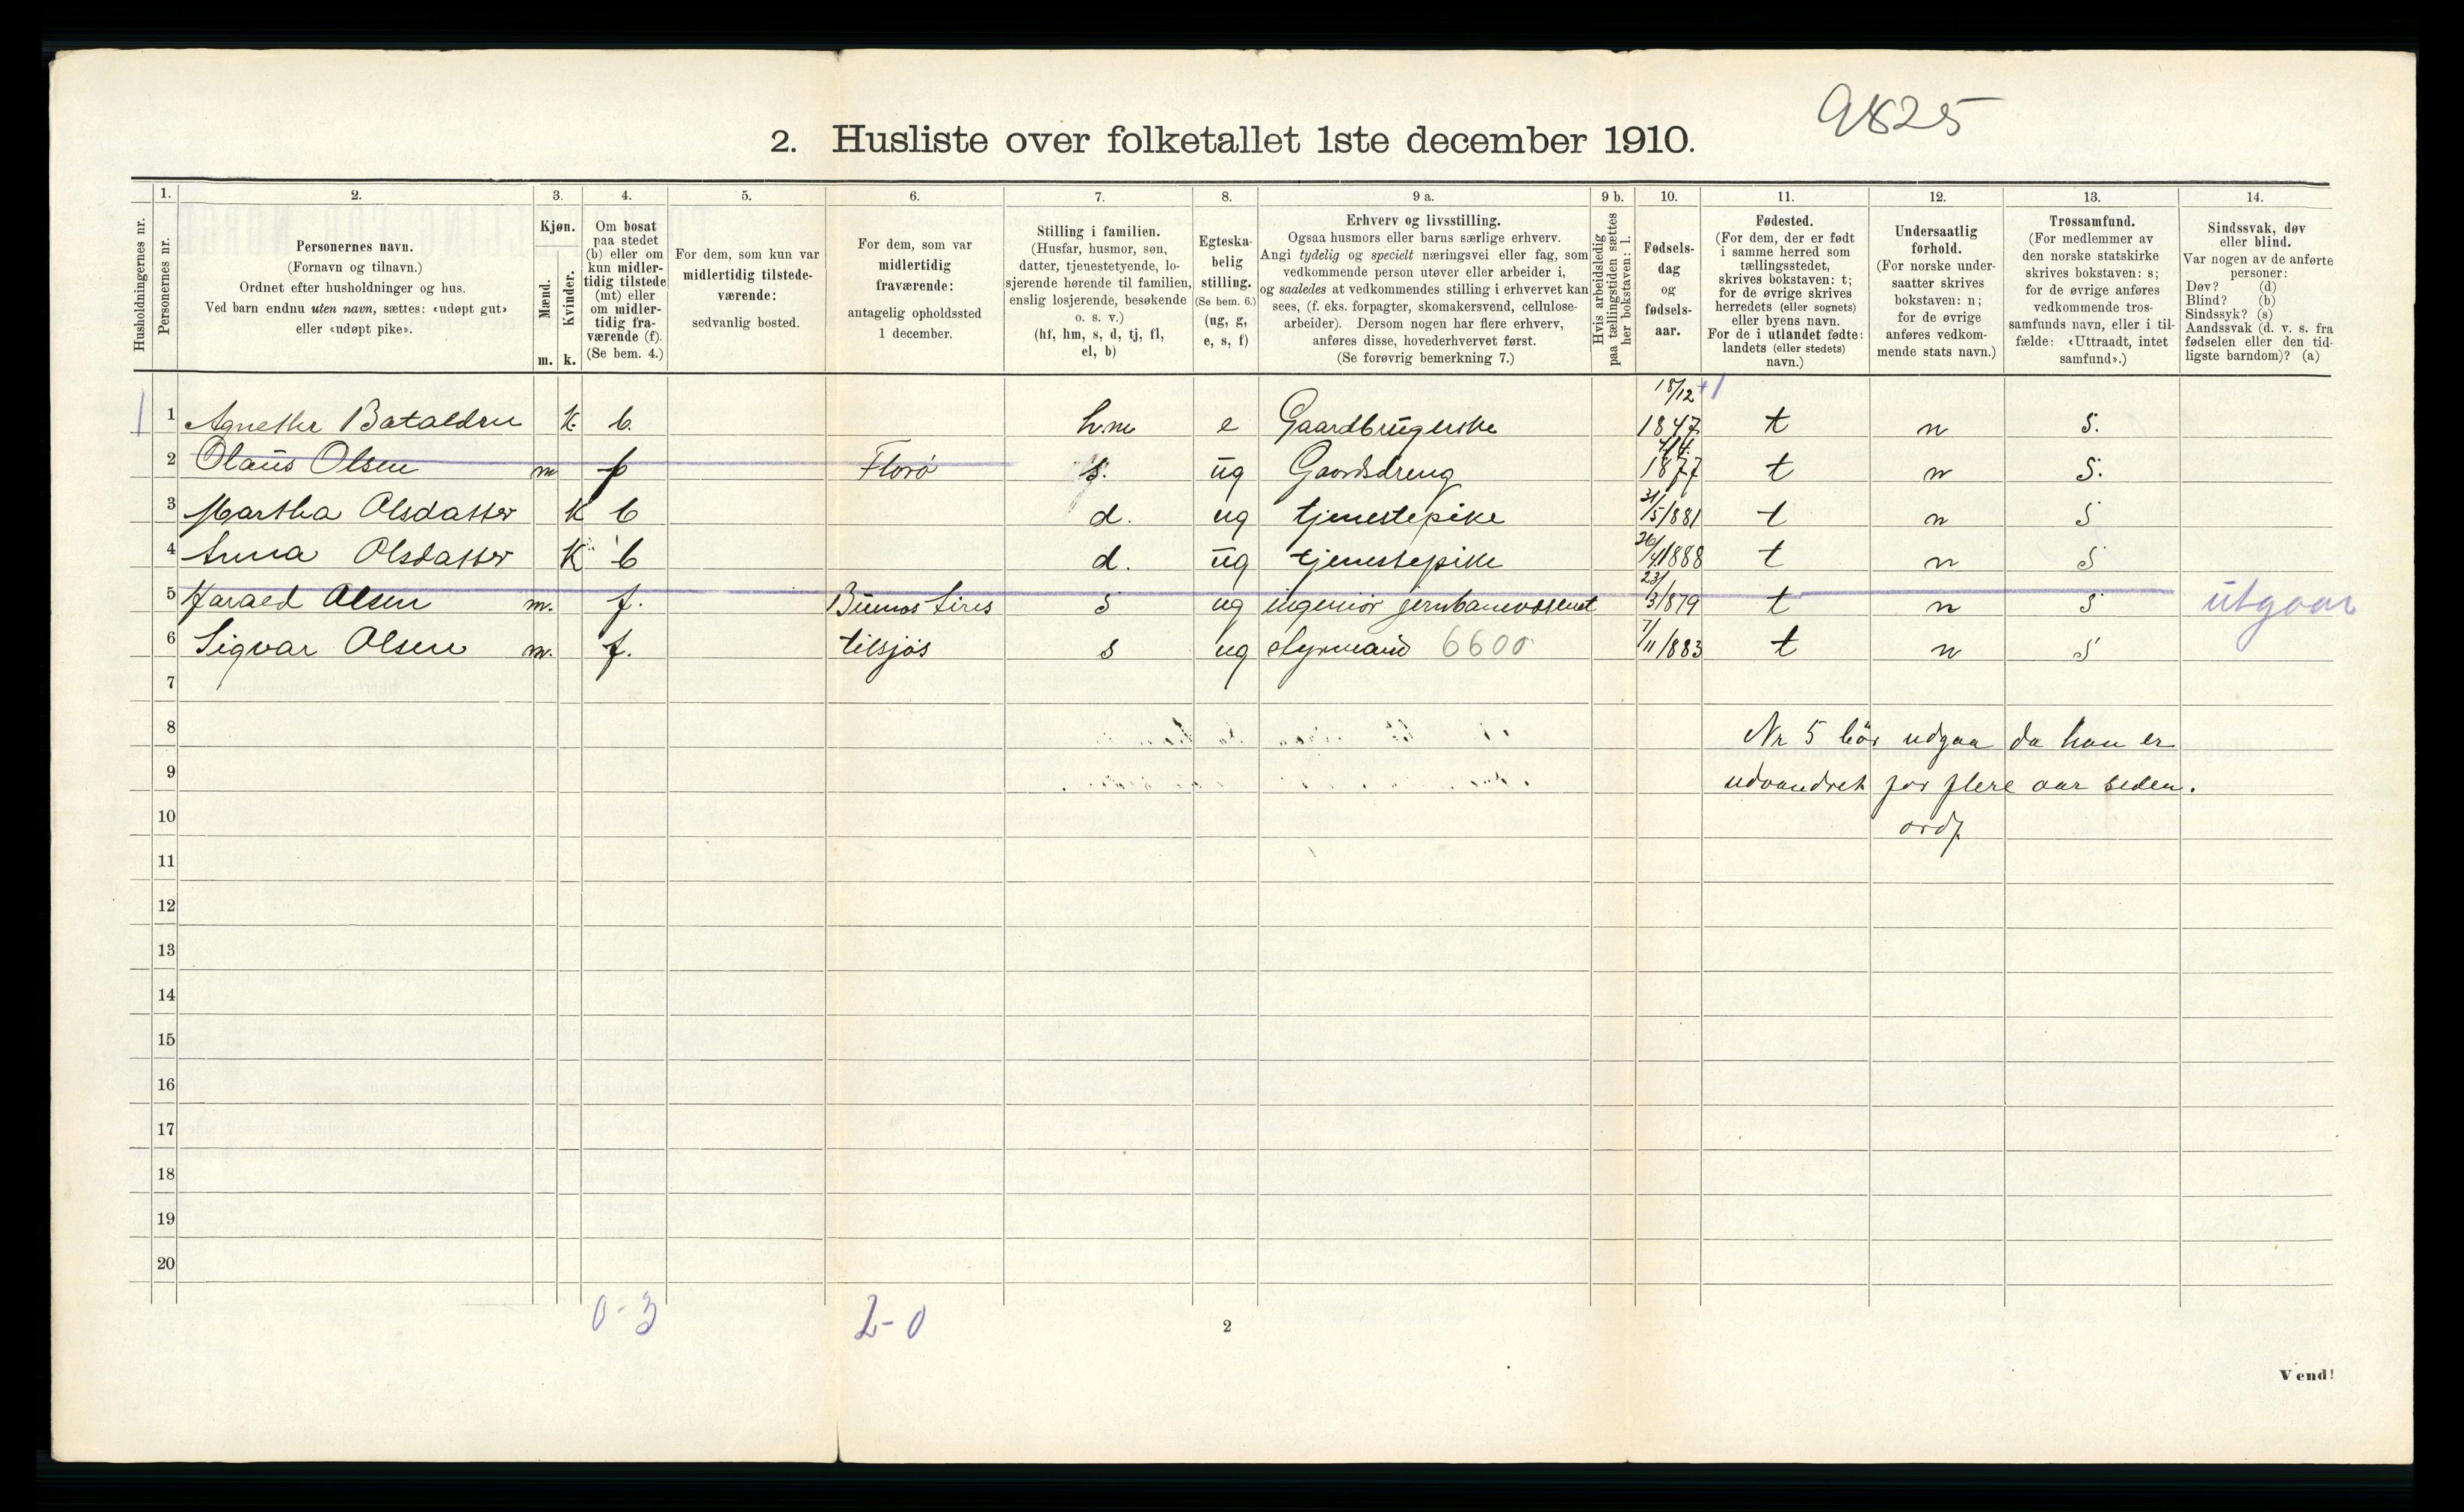 9825
2. Husliste over folketallet 1ste december 1910.
1. 2. 3. 4. 5. 6. 7. 8. 9 a. 9 b. 10. 11. 12. 13. 14.
Husholdningernes nr.
Personernes nr.
Personernes navn.
(Fornavn og tilnavn.)
Ordnet efter husholdninger og hus.
Ved barn endnu uten navn, sættes: «udøpt gut»
eller «udøpt pike».
Kjøn.
Mænd.
Kvinder.
m. k.
Om bosat
paa stedet
(b) eller om
kun midler-
tidig tilstede
(mt) eller
om midler-
tidig fra-
værende (f).
(Se bem. 4.)
For dem, som kun var
midlertidig tilstede-
værende:
sedvanlig bosted.
For dem, som var
midlertidig
fraværende:
antagelig opholdssted
1 december.
Stilling i familien.
(Husfar, husmor, søn,
datter, tjenestetyende, lo-
sjerende hørende til familien,
enslig losjerende, besøkende
o. s. v.)
(hf, hm, s, d, tj, fl,
el, b)
Egteska-
belig
stilling.
(Se bem. 6.)
(ug, g,
e, s, f)
Erhverv og livsstilling.
Ogsaa husmors eller barns særlige erhverv.
Angi tydelig og specielt næringsvei eller fag, som
vedkommende person utøver eller arbeider i,
og saaledes at vedkommendes stilling i erhvervet kan
sees, (f. eks. forpagter, skomakersvend, cellulose-
arbeider). Dersom nogen har flere erhverv,
anføres disse, hovederhvervet først.
(Se forøvrig bemerkning 7.)
Hvis arbeidsledig
paa tællingstiden sættes
her bokstaven: l.
Fødsels-
dag
og
fødsels-
aar.
Fødested.
(For dem, der er født
i samme herred som
tællingsstedet,
skrives bokstaven: t;
for de øvrige skrives
herredets (eller sognets)
eller byens navn.
For de i utlandet fødte:
landets (eller stedets)
navn.)
Undersaatlig
forhold.
(For norske under-
saatter skrives
bokstaven: n;
for de øvrige
anføres vedkom-
mende stats navn.)
Trossamfund.
(For medlemmer av
den norske statskirke
skrives bokstaven: s;
for de øvrige anføres
vedkommende tros-
samfunds navn, eller i til-
fælde: «Uttraadt, intet
samfund».)
Sindssvak, døv
eller blind.
Var nogen av de anførte
personer:
Døv? (d)
Blind? (b)
Sindssyk? (s)
Aandssvak (d. v. s. fra
fødselen eller den tid-
ligste barndom)? (a)
1 1 Agnethe Batalden K b. hm e Gaardbrugerske 18/12 1847 t n S.
2 Olaus Olsen m f Florø s. ug Gaardsdreng 1877 t n S.
3 Martha Olsdatter K b d. ug tjenestepike 31/5/881 t n S
4 Anna Olsdatter K b d. ug tjenestepike 26/4/1888 t n S
5 Harald Olsen m. f. Buenos Aires s ug ingeniør jernbanevæsenet 23/3/879 t n S utgaar
6 Sigvar Olsen m. f. tilsjøs s ug styrmand 6600 7/11/883 t n S
7
8 Nr 5 bør udgaa da han er
9 udvandret for flere aar siden.
10 ordf.
11
12
13
14
15
16
17
18
19
20
0-3 2-0
2
Vend!